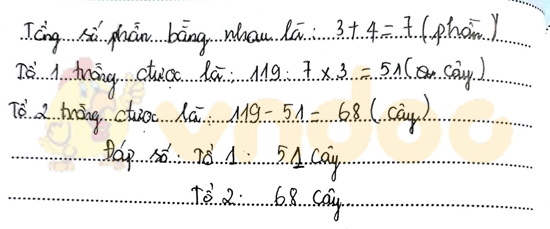 Tổng số phần bằng nhau là: 3 + 4 = 7 (phần)
Tổ 1 trồng được là: 119 : 7 x 3 = 51 (cây)
Tổ 2 trồng được là: 119 - 51 = 68 (cây)
Đáp số: Tổ 1: 51 cây
Tổ 2: 68 cây
vndoc